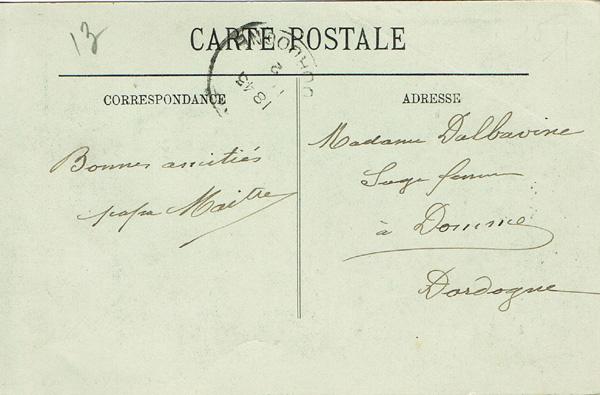 13
CARTE POSTALE
18 45
2
CORRESPONDANCE
ADRESSE
Bonnes amitiés
papa Maitre
Madame Dalbavine
Sage femme
à Domme
Dordogne